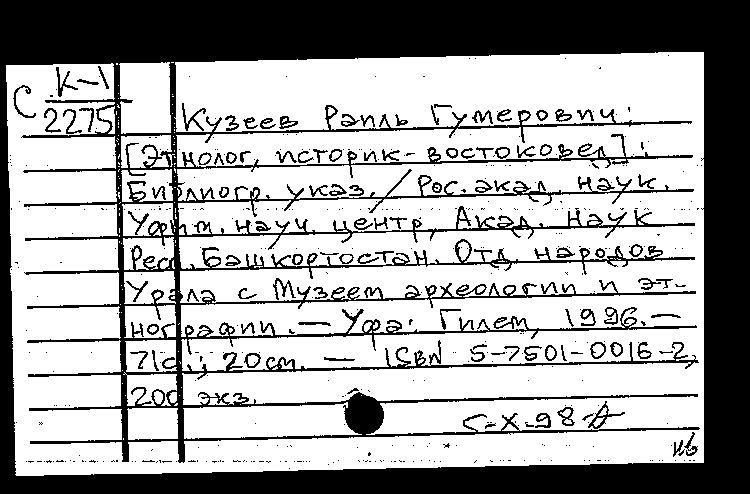 С К-1
2275
Кузеев Раиль Гумерович:
[Этнолог, историк-востоковед]:
Библиогр. указ. / Рос. акад. наук.
Уфим. науч. центр, Акад. наук
Респ. Башкортостан. Отд. народов
Урала с Музеем археологии и эт-
нографии. — Уфа: Гилем, 1996. —
71с.; 20см. — ISBN 5-7501-0016-2,
200 экз.
5-X-98